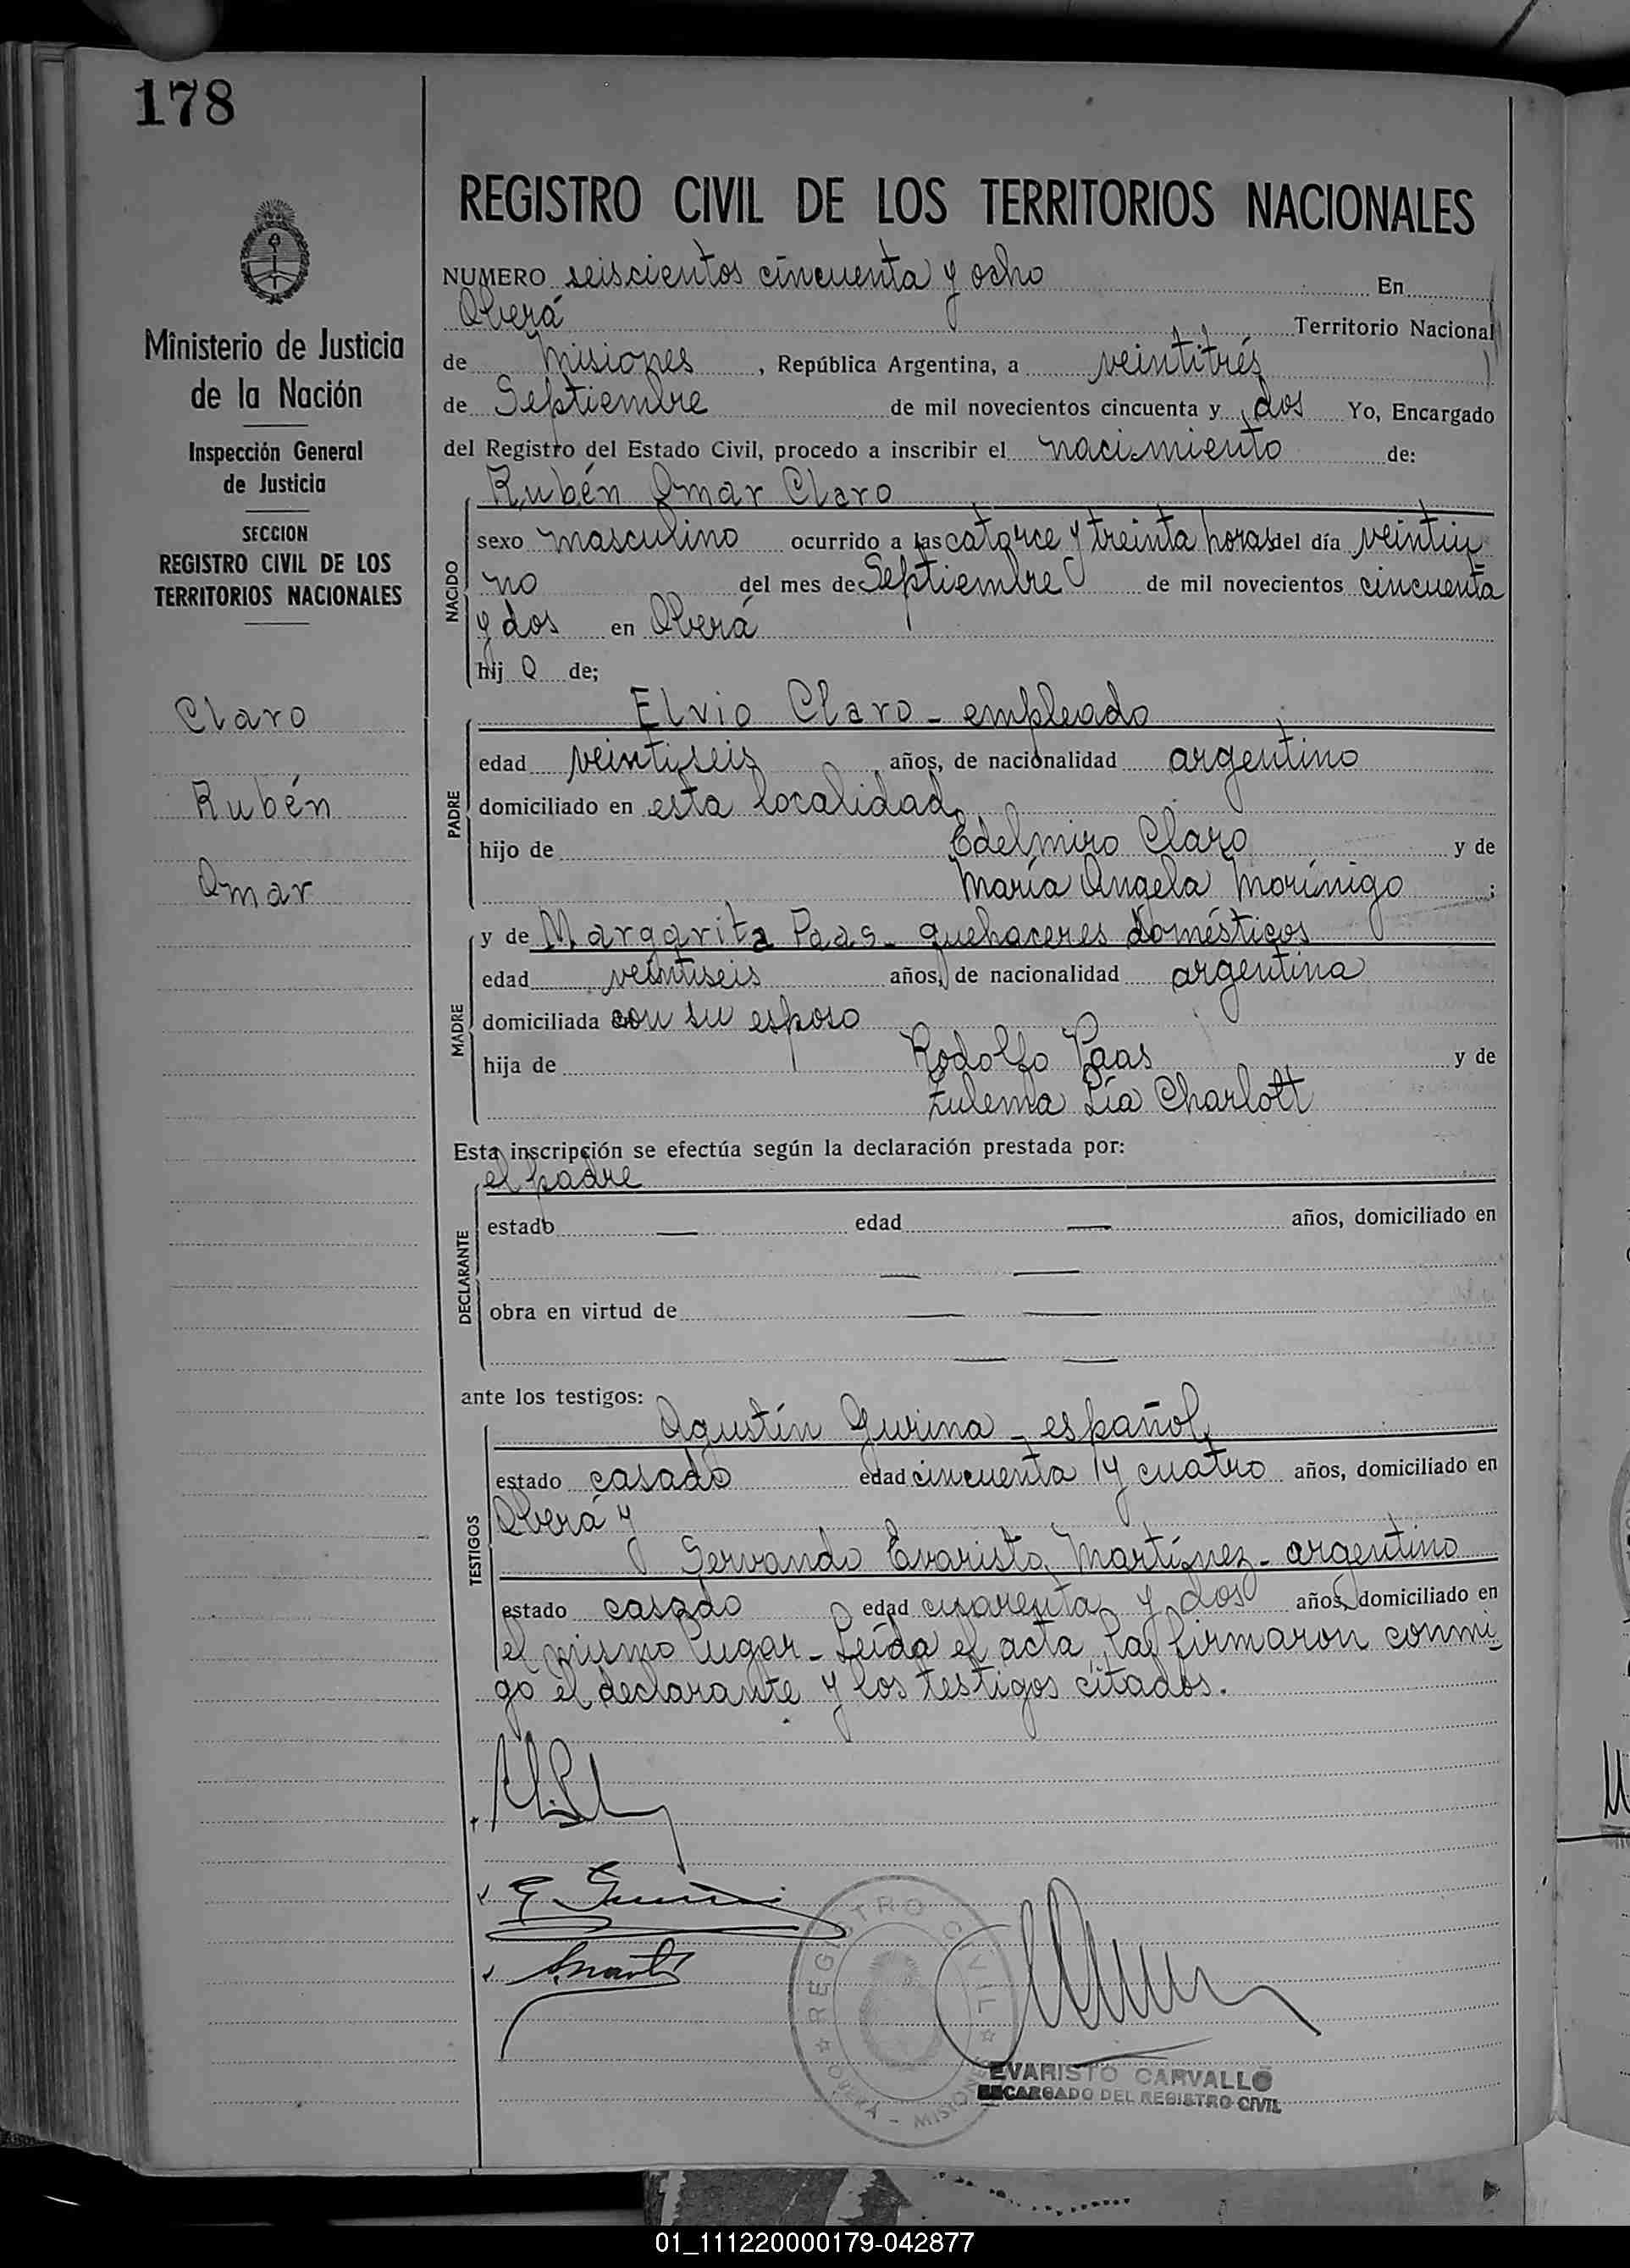 178
REGISTRO CIVIL DE LOS TERRITORIOS NACIONALES
Ministerio de Justicia
de la Nación
Inspección General
de Justicia
SECCION
REGISTRO CIVIL DE LOS
TERRITORIOS NACIONALES
Claro
Rubén
Omar
NUMERO seiscientos cincuenta y ocho En
Oberá Territorio Nacional
de Misiones, República Argentina, a veintitrés
de Septiembre de mil novecientos cincuenta y dos Yo, Encargado
del Registro del Estado Civil, procedo a inscribir el nacimiento de:
Rubén Omar Claro
NACIDO
sexo masculino ocurrido a las catorce y treinta horas del día veintiu-
no del mes de Septiembre de mil novecientos cincuenta
y dos en Oberá
hij o de;
PADRE
Elvio Claro - empleado
edad veintiseis años, de nacionalidad argentino
domiciliado en esta localidad,
hijo de Edelmiro Claro y de
María Angela Morínigo ;
MADRE
y de Margarita Paas - quehaceres domésticos
edad veintiseis años, de nacionalidad argentina
domiciliada con su esposo
hija de Rodolfo Paas y de
Zulema Lía Charlott
Esta inscripción se efectúa según la declaración prestada por:
el padre
DECLARANTE
estado — edad — años, domiciliado en
— —
obra en virtud de — —
— —
ante los testigos:
TESTIGOS
Agustín Gurina - español,
estado casado edad cincuenta y cuatro años, domiciliado en
Oberá y
Servando Evaristo Martínez - argentino
estado casado edad cuarenta y dos años, domiciliado en
el mismo lugar - Leída el acta, la firmaron conmi-
go el declarante y los testigos citados.
REGISTRO CIVIL
OBERÁ - MISIONES
EVARISTO CARVALLO
ENCARGADO DEL REGISTRO CIVIL
01_111220000179-042877